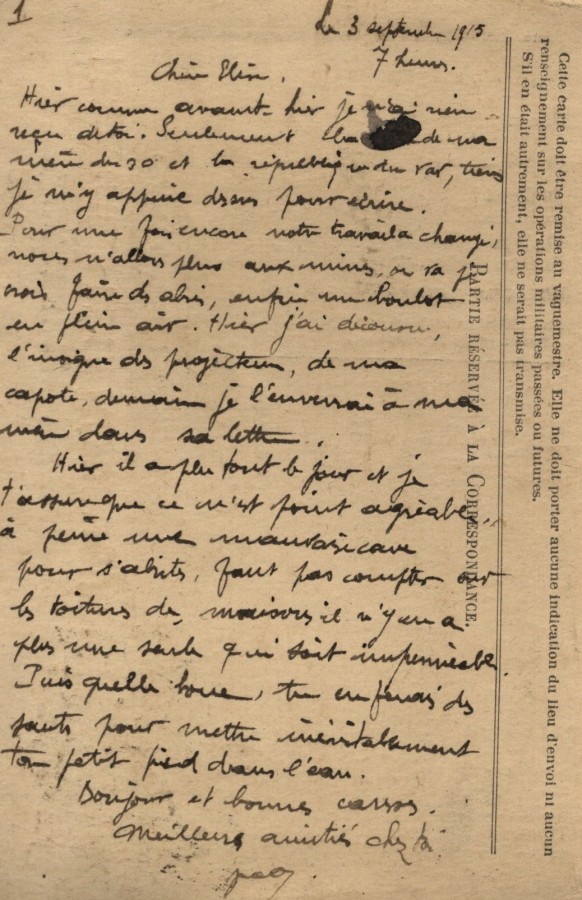 1
Le 3 septembre 1915
7 heures.
Chère Elise,
Hier comme avant-hier je n'ai rien
reçu de toi. Seulement de ma
mère du 30 et la république du var, tiens
je m'y appuie dessus pour écrire.
Pour une fois encore notre travail a changé,
nous n'allons plus aux mines, on va je
crois faire des abris, enfin un boulot
en plein air. Hier j'ai décousu,
l'insigne des projecteurs, de ma
capote, demain je l'enverrai à ma
mère dans sa lettre.
Hier il a plu tout le jour et je
t'assure que ce n'est point agréable
à peine une mauvaise cave
pour s'abriter, faut pas compter sur
les toitures des maisons il n'y en a
plus une seule qui soit imperméable.
Puis quelle boue, tu en ferais des
sauts pour mettre inévitablement
ton petit pied dans l'eau.
Bonjour et bonnes
Meilleures amitiés chez toi
PARTIE RÉSERVÉE À LA CORRESPONDANCE.
Cette carte doit être remise au vaguemestre. Elle ne doit porter aucune indication du lieu d'envoi ni aucun
renseignement sur les opérations militaires passées ou futures.
S'il en était autrement, elle ne serait pas transmise.